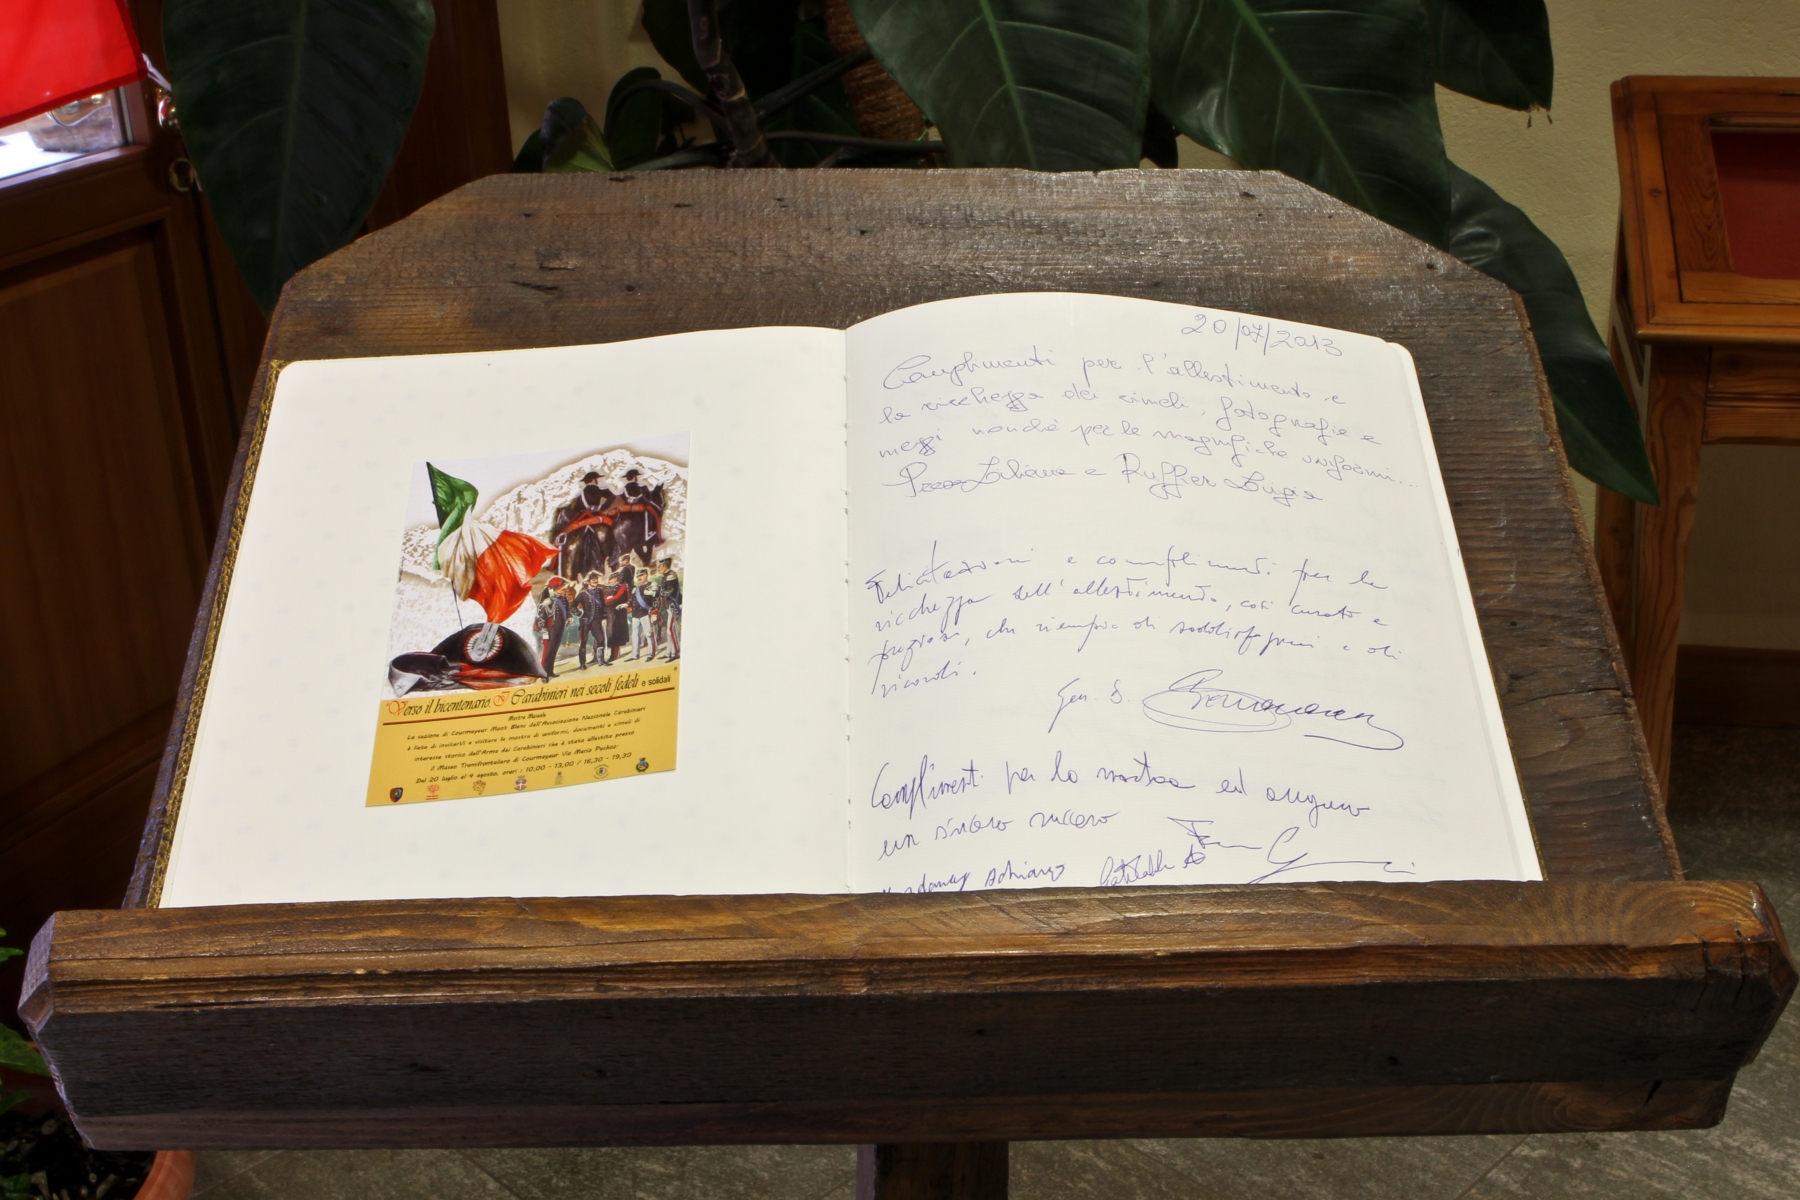 "Verso il bicentenario. I Carabinieri nei secoli fedeli e solidali"
Mostra Museale
La sezione di Courmayeur Mont Blanc dell'Associazione Nazionale Carabinieri
è lieta di invitarVi a visitare la mostra di uniformi, documenti e cimeli di
interesse storico dell'Arma dei Carabinieri che è stata allestita presso
il Museo Transfrontaliero di Courmayeur Via Mario Puchoz
Dal 20 luglio al 4 agosto, orari: 10,00 - 13,00 / 16,30 - 19,30
20/07/2013
Complimenti per l'allestimento e
la ricchezza dei cimeli, fotografie e
mezzi nonché per le magnifiche uniformi...
Liliana e Ruffier Luigia
Felicitazioni e complimenti per la
ricchezza dell'allestimento, così curato e
prezioso, che riempie di soddisfazioni e di
ricordi.
Gen. D.
Complimenti per la mostra ed auguro
un sincero successo
Adriano